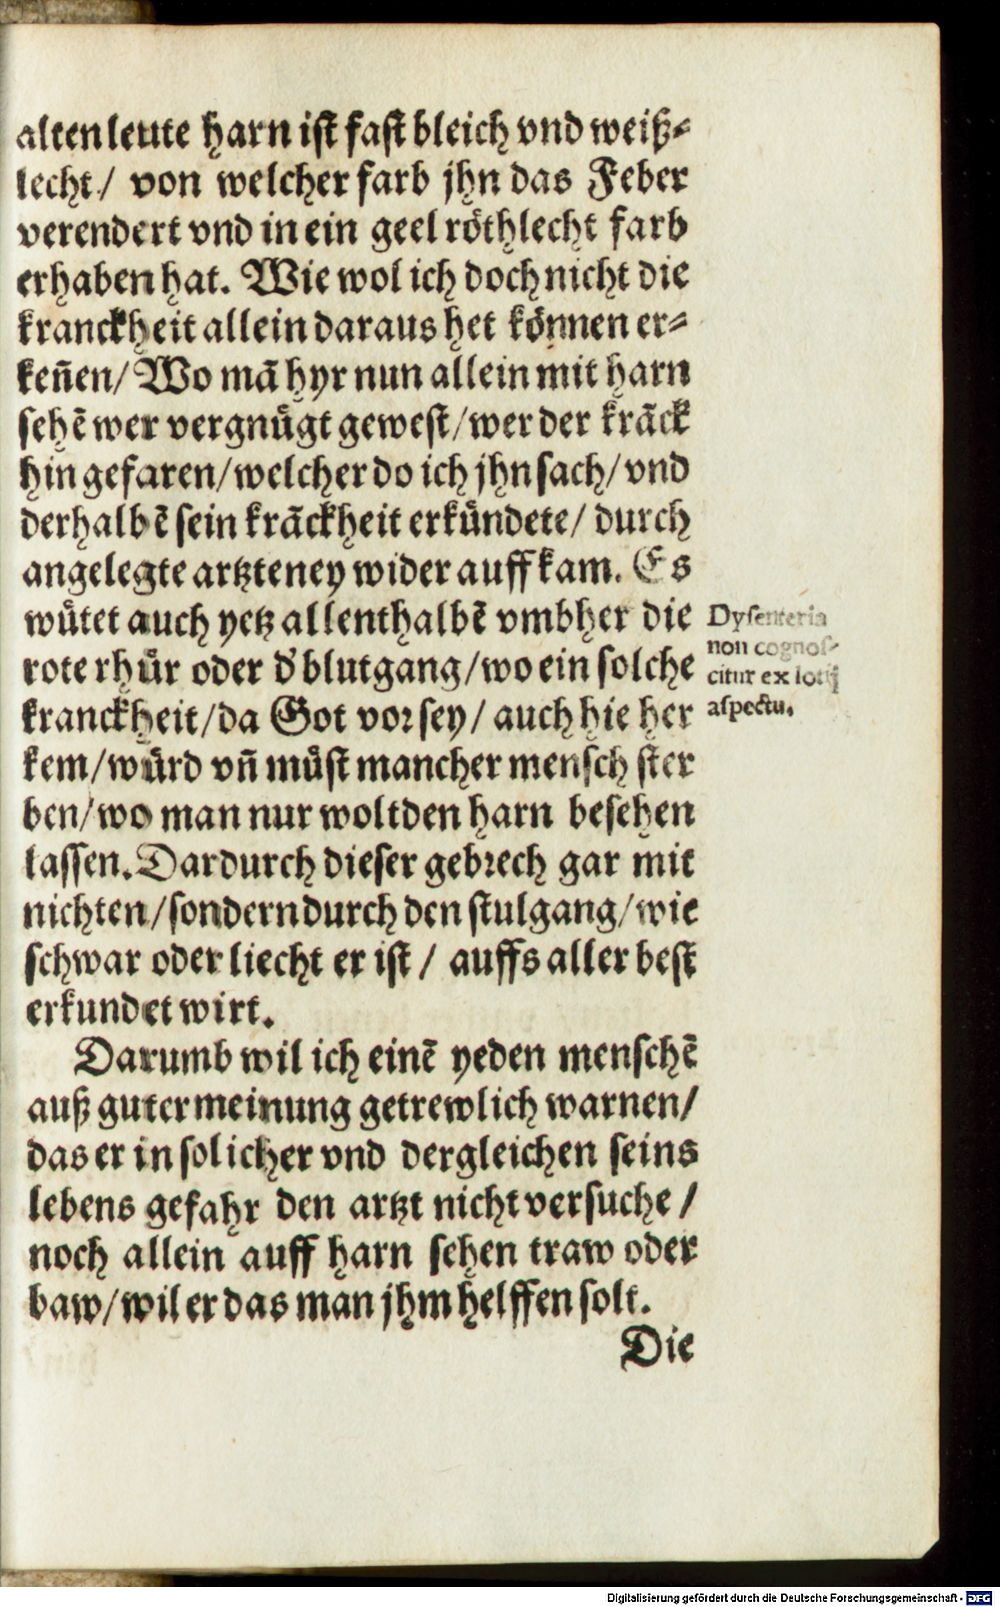 alten leute harn ist fast bleich vnd weiß⸗
lecht/ von welcher farb jhn das Feber
verendert vnd in ein geel röthlecht farb
erhaben hat. Wie wol ich doch nicht die
kranckheit allein daraus het können er⸗
keñen/ Wo mā hyr nun allein mit harn
sehē wer vergnügt gewest/ wer der krāck
hin gefaren/ welcher do ich jhn sach/ vnd
derhalbē sein krāckheit erkündete/ durch
angelegte artzteney wider auff kam. Es
wütet auch yetz allenthalbē vmbher die
rote rhür oder d' blutgang/ wo ein solche
kranckheit/ da Got vor sey/ auch hie her
kem/ würd vñ müst mancher mensch ster
ben/ wo man nur wolt den harn besehen
lassen. Dardurch dieser gebrech gar mit
nichten/ sondern durch den stulgang/ wie
schwar oder liecht er ist/ auffs aller best
erkundet wirt.
Darumb wil ich einē yeden menschē
auß guter meinung getrewlich warnen/
das er in solicher vnd dergleichen seins
lebens gefahr den artzt nicht versuche/
noch allein auff harn sehen traw oder
baw/ wil er das man jhm helffen solt.
Die
Dysenteria
non cognos-
citur ex lotij
aspectu.
Digitalisierung gefördert durch die Deutsche Forschungsgemeinschaft - DFG